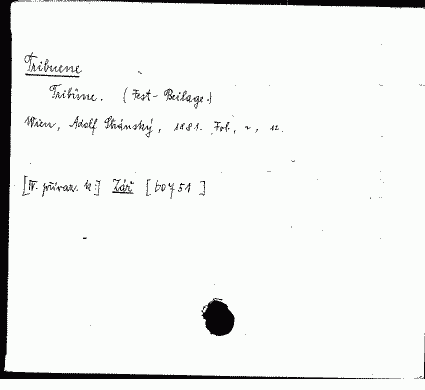 Tribuene
Tribüne. (Fest-Beilage.)
Wien, Adolf Stránský, 1881. Fol., 2, 12.
[IV. přívaz. k:] Zář [60751]